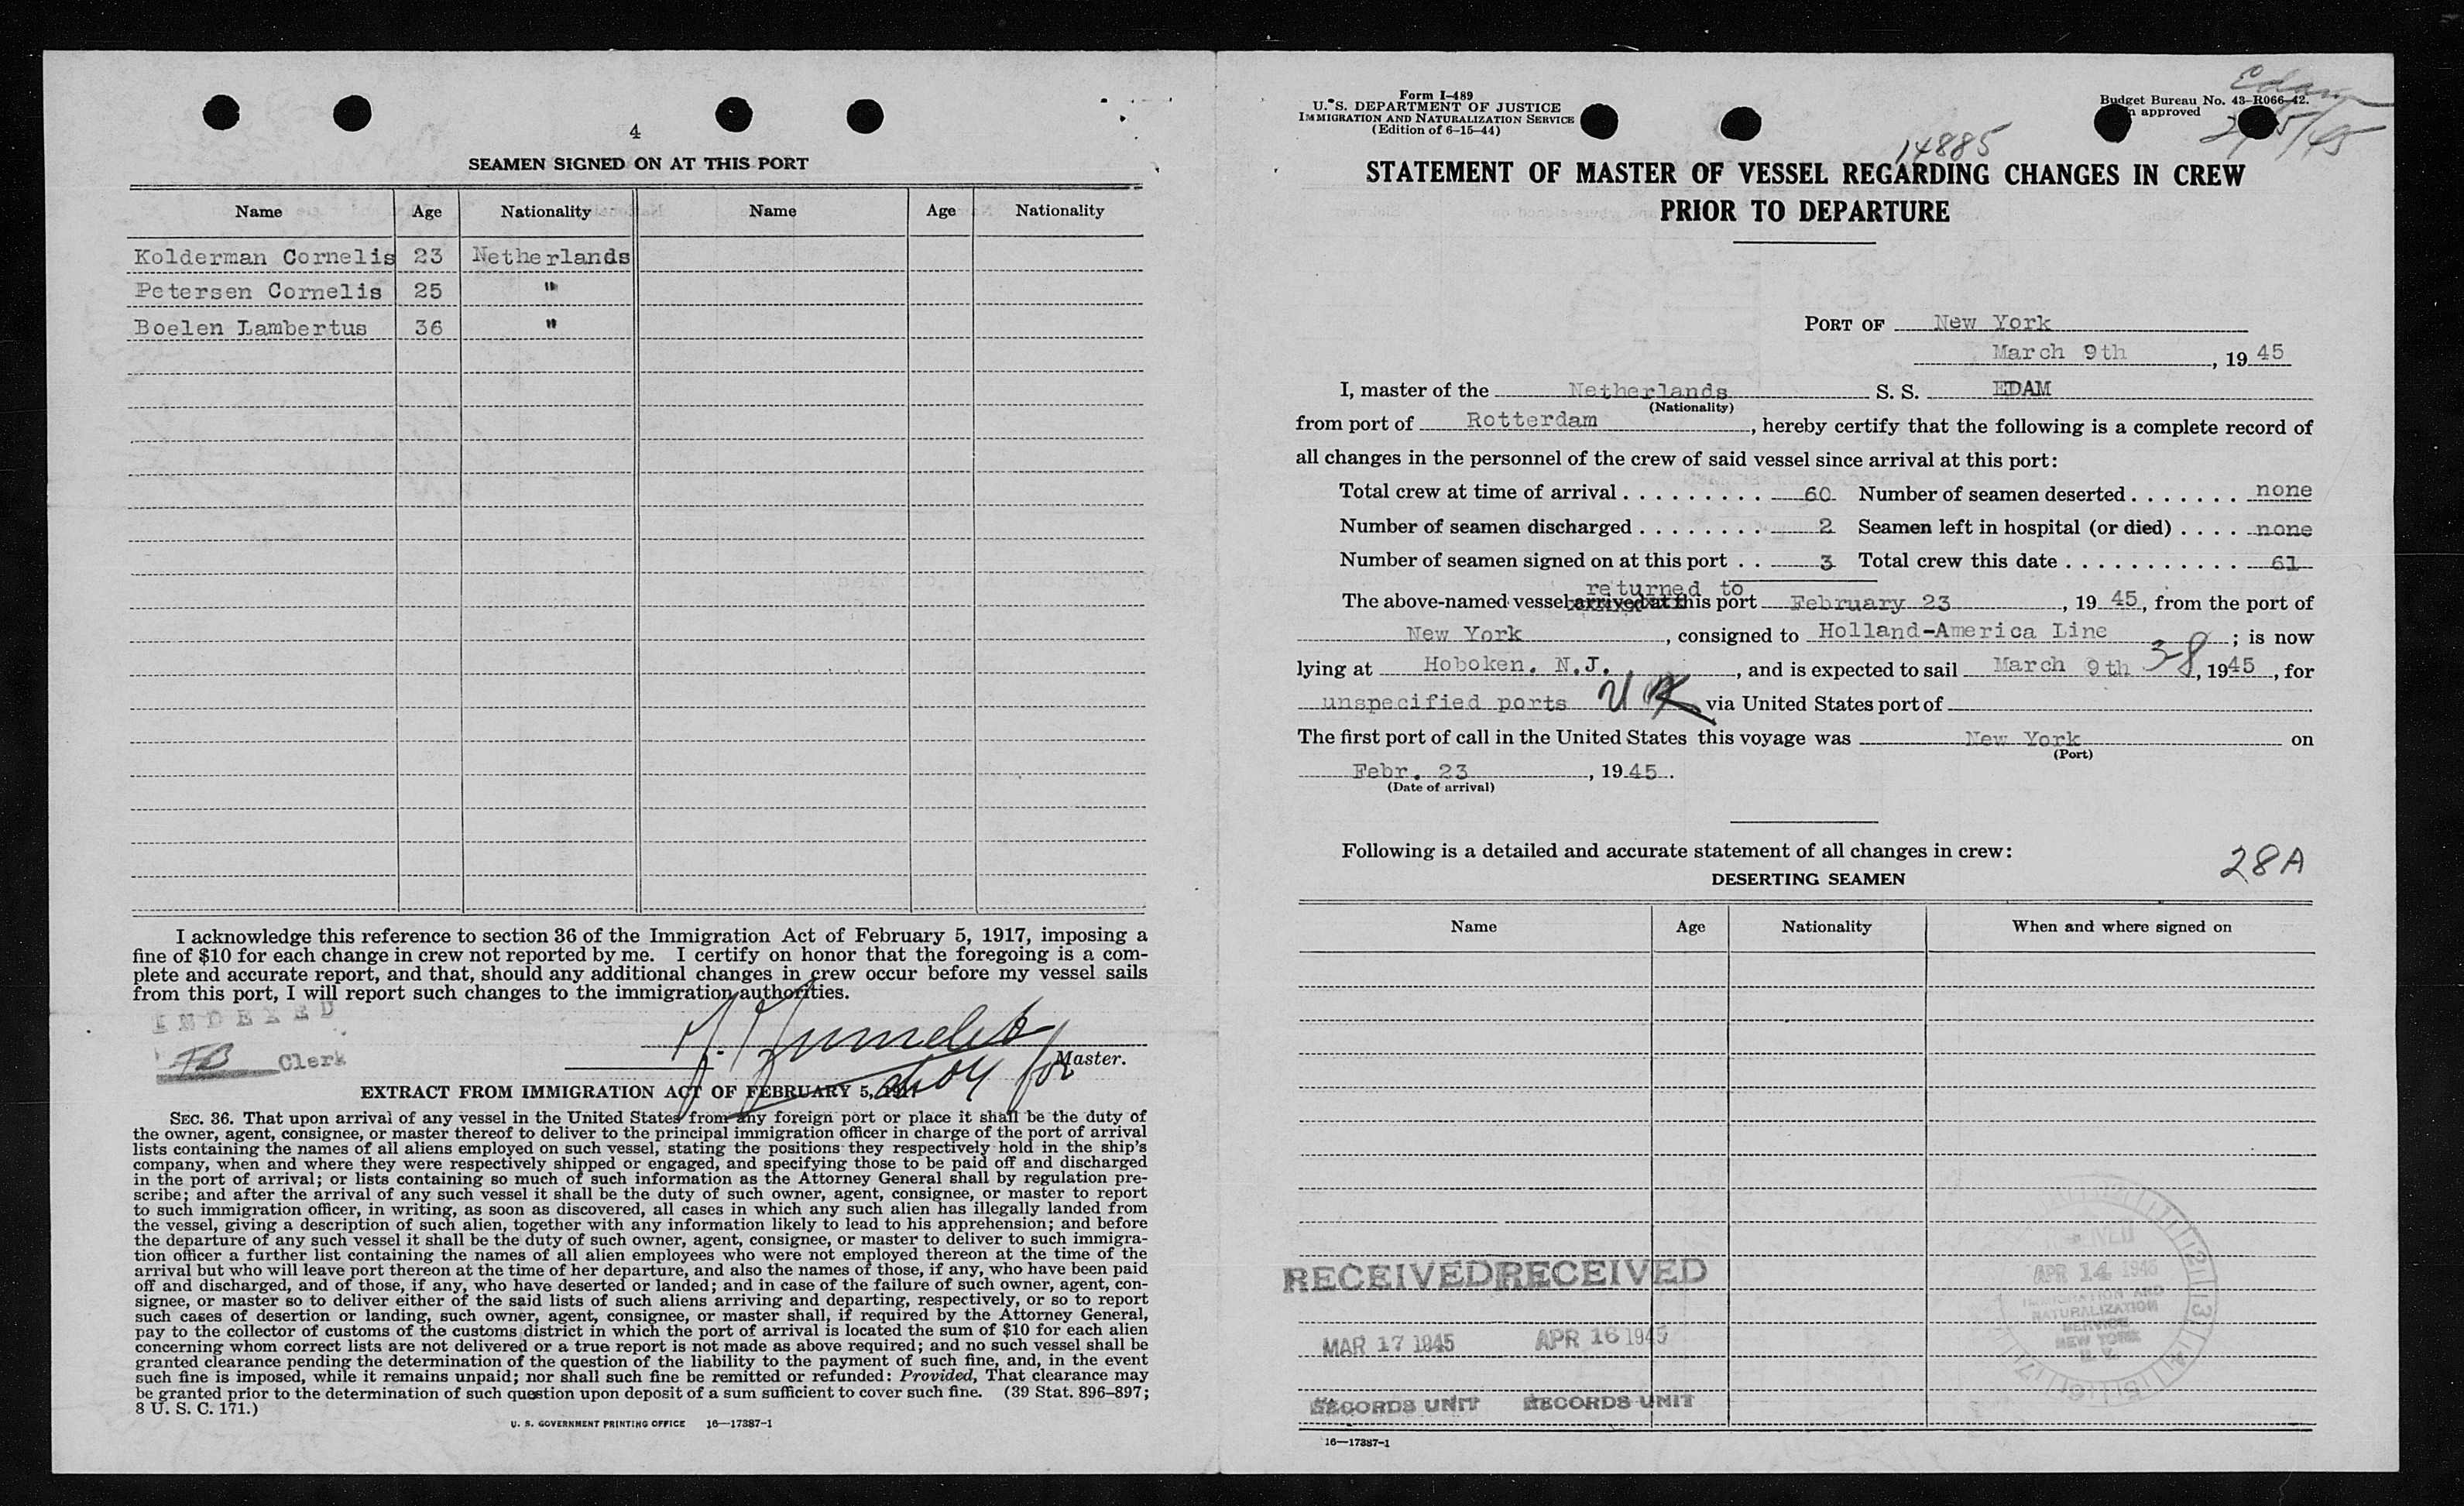 4
SEAMEN SIGNED ON AT THIS PORT
Name Age Nationality Name Age Nationality
Kolderman Cornelis 23 Netherlands
Petersen Cornelis 25 "
Boelen Lambertus 36 "
I acknowledge this reference to section 36 of the Immigration Act of February 5, 1917, imposing a
fine of $10 for each change in crew not reported by me. I certify on honor that the foregoing is a com-
plete and accurate report, and that, should any additional changes in crew occur before my vessel sails
from this port, I will report such changes to the immigration authorities.
INDEXED
Clerk
for
Master.
EXTRACT FROM IMMIGRATION ACT OF FEBRUARY 5, 1917
SEC. 36. That upon arrival of any vessel in the United States from any foreign port or place it shall be the duty of
the owner, agent, consignee, or master thereof to deliver to the principal immigration officer in charge of the port of arrival
lists containing the names of all aliens employed on such vessel, stating the positions they respectively hold in the ship's
company, when and where they were respectively shipped or engaged, and specifying those to be paid off and discharged
in the port of arrival; or lists containing so much of such information as the Attorney General shall by regulation pre-
scribe; and after the arrival of any such vessel it shall be the duty of such owner, agent, consignee, or master to report
to such immigration officer, in writing, as soon as discovered, all cases in which any such alien has illegally landed from
the vessel, giving a description of such alien, together with any information likely to lead to his apprehension; and before
the departure of any such vessel it shall be the duty of such owner, agent, consignee, or master to deliver to such immigra-
tion officer a further list containing the names of all alien employees who were not employed thereon at the time of the
arrival but who will leave port thereon at the time of her departure, and also the names of those, if any, who have been paid
off and discharged, and of those, if any, who have deserted or landed; and in case of the failure of such owner, agent, con-
signee, or master so to deliver either of the said lists of such aliens arriving and departing, respectively, or so to report
such cases of desertion or landing, such owner, agent, consignee, or master shall, if required by the Attorney General,
pay to the collector of customs of the customs district in which the port of arrival is located the sum of $10 for each alien
concerning whom correct lists are not delivered or a true report is not made as above required; and no such vessel shall be
granted clearance pending the determination of the question of the liability to the payment of such fine, and, in the event
such fine is imposed, while it remains unpaid; nor shall such fine be remitted or refunded: Provided, That clearance may
be granted prior to the determination of such question upon deposit of a sum sufficient to cover such fine. (39 Stat. 896–897;
8 U. S. C. 171.)
U. S. GOVERNMENT PRINTING OFFICE 16—17387-1
Form I-489
U. S. DEPARTMENT OF JUSTICE
IMMIGRATION AND NATURALIZATION SERVICE
(Edition of 6-15-44)
Edam
Budget Bureau No. 43-R066-42.
approved
14885
STATEMENT OF MASTER OF VESSEL REGARDING CHANGES IN CREW
PRIOR TO DEPARTURE
PORT OF New York
March 9th, 1945
I, master of the Netherlands S. S. EDAM
(Nationality)
from port of Rotterdam, hereby certify that the following is a complete record of
all changes in the personnel of the crew of said vessel since arrival at this port:
Total crew at time of arrival 60 Number of seamen deserted none
Number of seamen discharged 2 Seamen left in hospital (or died) none
Number of seamen signed on at this port 3 Total crew this date 61
returned to
The above-named vessel arrived at this port February 23, 1945, from the port of
New York, consigned to Holland-America Line; is now
lying at Hoboken, N.J., and is expected to sail March 9th 3-8, 1945, for
unspecified ports UK via United States port of
The first port of call in the United States this voyage was New York on
(Port)
Febr. 23, 1945.
(Date of arrival)
Following is a detailed and accurate statement of all changes in crew:
28A
DESERTING SEAMEN
Name Age Nationality When and where signed on
RECEIVED RECEIVED
MAR 17 1945 APR 16 1945
RECORDS UNIT RECORDS UNIT
RECEIVED
APR 14 1945
IMMIGRATION AND
NATURALIZATION
SERVICE
NEW YORK
N. Y.
16—17387-1